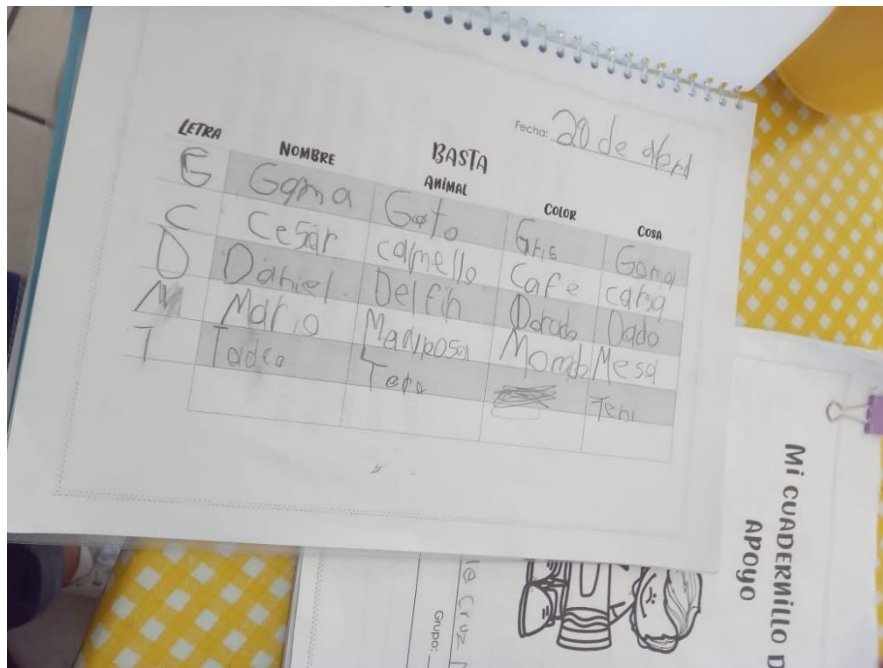 Fecha: 20 de abril
BASTA
LETRA NOMBRE ANIMAL COLOR COSA
G Gama Gato Gris Goma
C Cesar camello Cafe cama
D Daniel Delfin Dorado Dado
M Mario Mariposa Morado Mesa
T Tadeo Teni
Mi CUADERNILLO D
APOYO
le Cruz
Grupo: